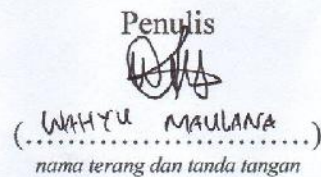 Penulis
(WAHYU MAULANA)
nama terang dan tanda tangan